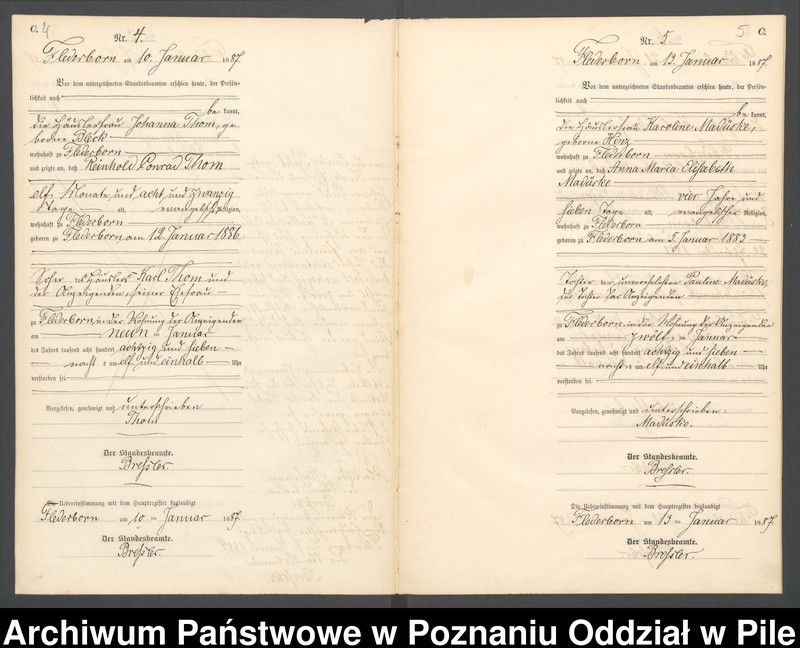 C. 4
Nr. 4.
Flederborn am 10. Januar 1887.
Vor dem unterzeichneten Standesbeamten erschien heute, der Persön-
lichkeit nach
be kannt,
die Häuslerfrau Johanna Thom, ge-
borene Bleck
wohnhaft zu Flederborn
und zeigte an, daß Reinhold Conrad Thom
elf Monate und acht und zwanzig
Tage alt, evangelischer Religion,
wohnhaft zu Flederborn
geboren zu Flederborn am 12. Januar 1886
Sohn des Häuslers Karl Thom und
der Anzeigenden, seiner Ehefrau
zu Flederborn, in der Wohnung der Anzeigenden
am neun ten Januar
des Jahres tausend acht hundert achtzig und sieben
nachts um elf und einhalb Uhr
verstorben sei.
Vorgelesen, genehmigt und unterschrieben
Thom
Der Standesbeamte.
Bressler.
Die Uebereinstimmung mit dem Hauptregister beglaubigt
Flederborn am 10. ten Januar 1887.
Der Standesbeamte.
Bressler.
5 C.
Nr. 5.
Flederborn am 13. Januar 1887
Vor dem unterzeichneten Standesbeamten erschien heute, der Persön-
lichkeit nach
be kannt,
die Häuslerfrau Karoline Madüske,
geborene Hinz
wohnhaft zu Flederborn
und zeigte an, daß Anna Maria Elisabeth
Madüske
vier Jahre und
sieben Tage alt, evangelischer Religion,
wohnhaft zu Flederborn
geboren zu Flederborn am 5. Januar 1883
Tochter der unverehelichten Pauline Madüske,
der Tochter der Anzeigenden
zu Flederborn, in der Wohnung der Anzeigenden
am zwölf ten Januar
des Jahres tausend acht hundert achtzig und sieben
nachts um elf und einhalb Uhr
verstorben sei.
Vorgelesen, genehmigt und unterschrieben:
Madüske.
Der Standesbeamte.
Bressler.
Die Uebereinstimmung mit dem Hauptregister beglaubigt
Flederborn am 13 ten Januar 1887.
Der Standesbeamte.
Bressler.
Archiwum Państwowe w Poznaniu Oddział w Pile